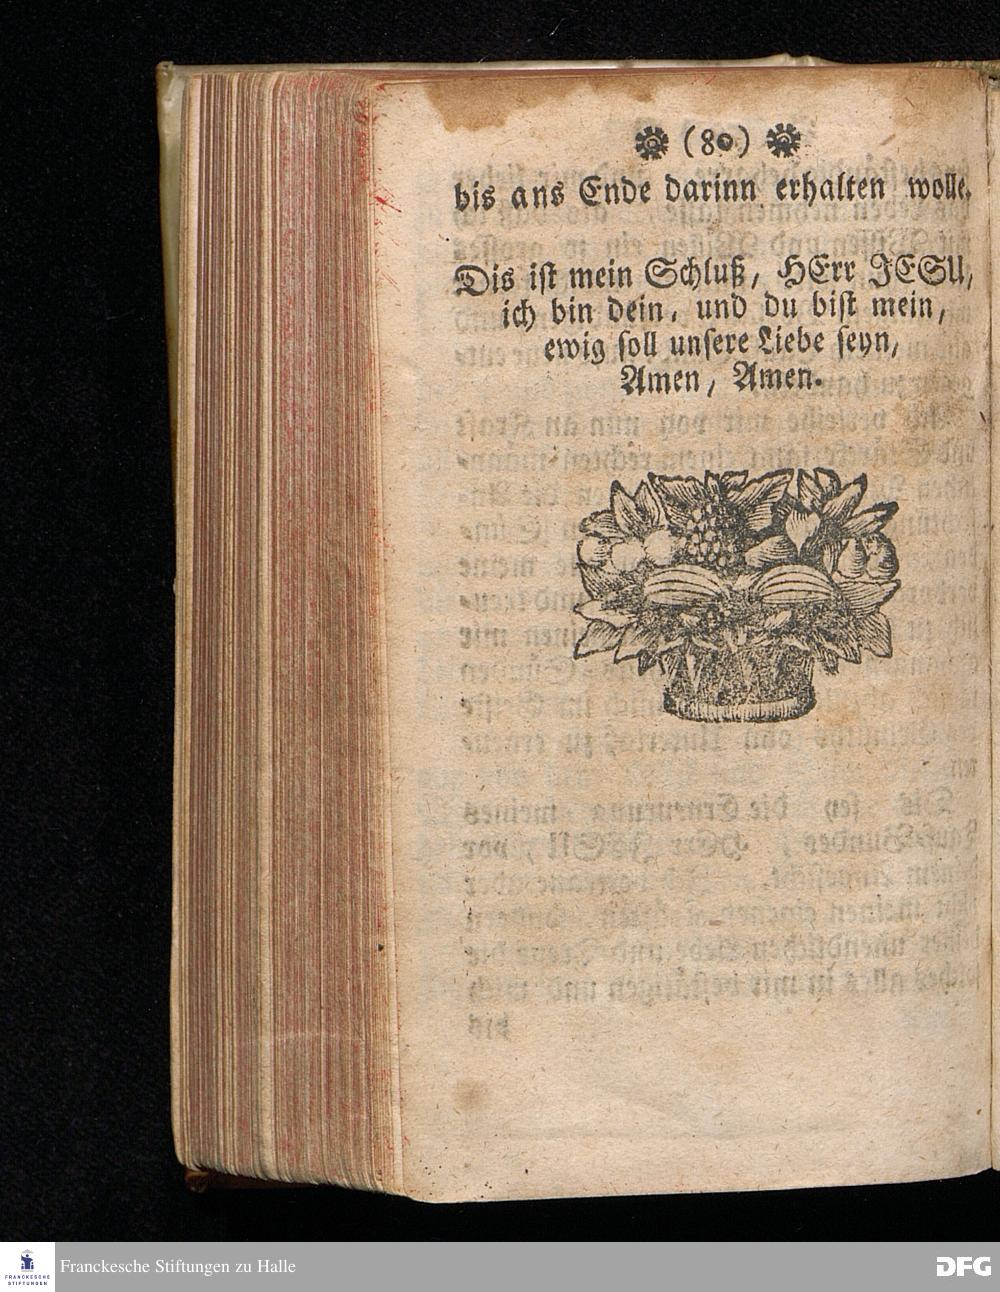 (80)
bis ans Ende darinn erhalten wolle.
Dis ist mein Schluß, HErr JESU,
ich bin dein, und du bist mein,
ewig soll unsere Liebe seyn,
Amen, Amen.
FRANCKESCHE
STIFTUNGEN
Franckesche Stiftungen zu Halle
DFG